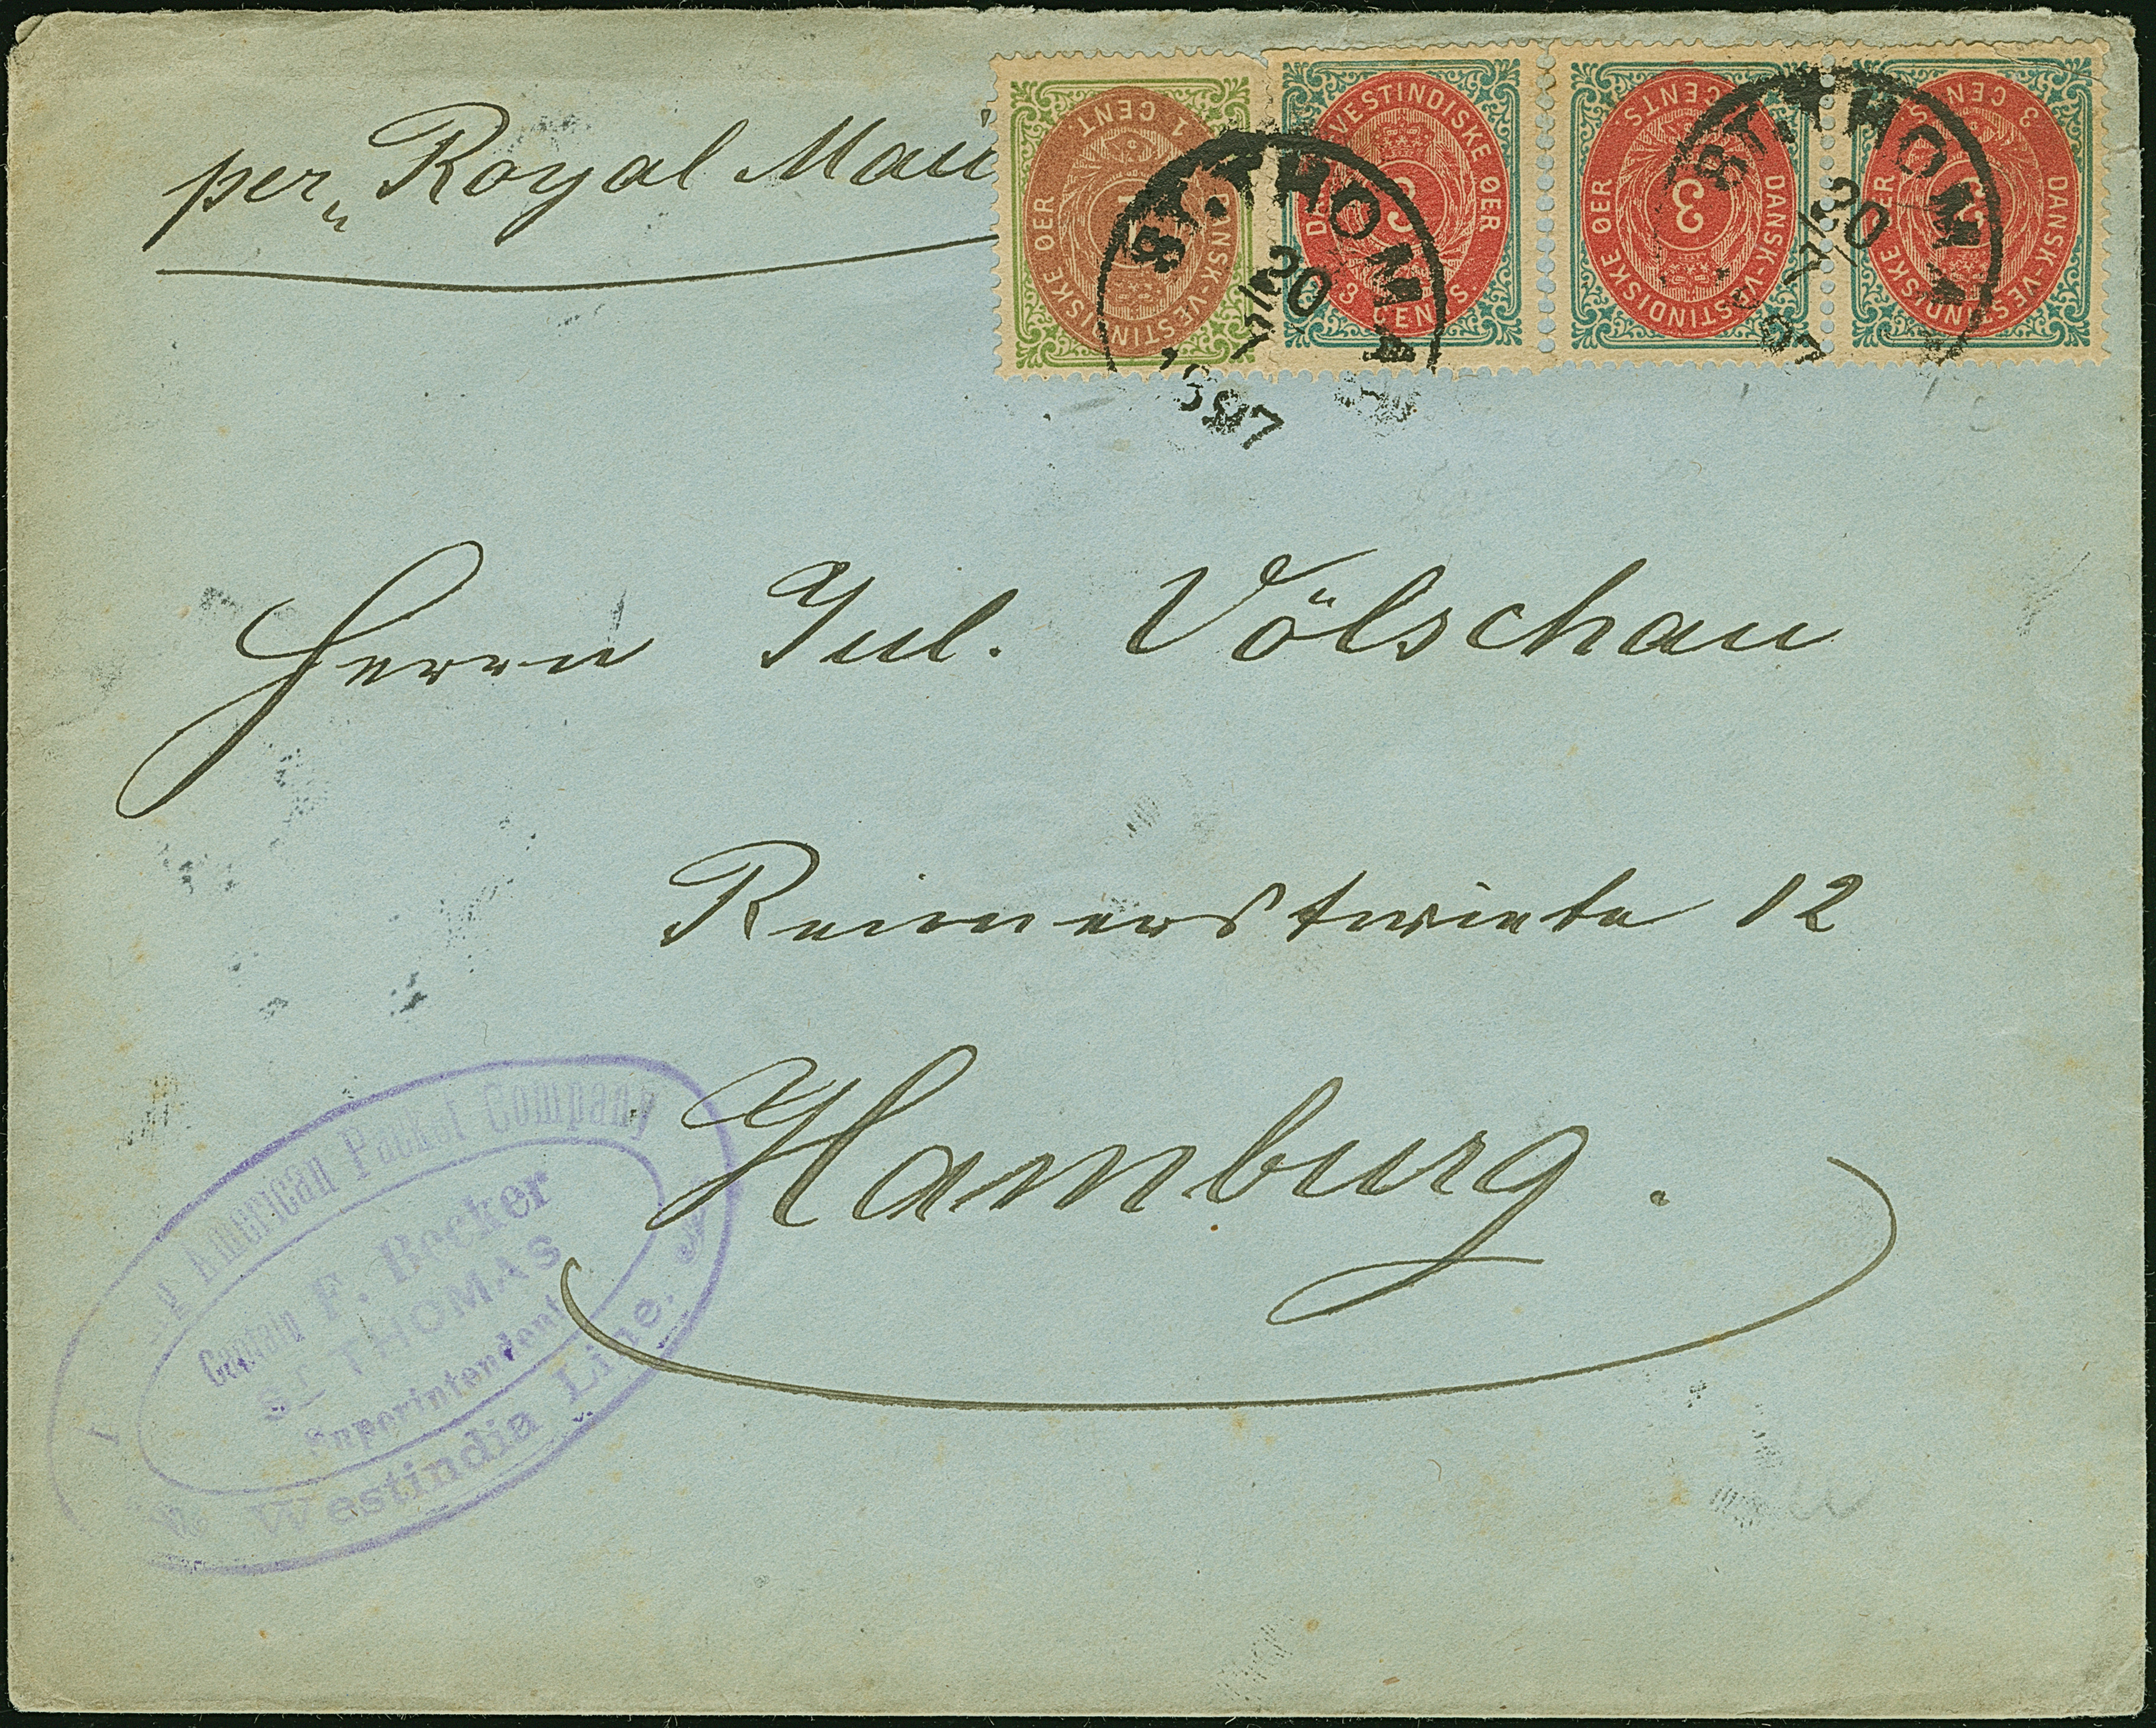 per Royal Mail
1 CENT
DANSK-VESTINDISKE ØER
VESTINDISKE ØER
3
3 CENTS
3 CENTS
DANSK-VESTINDISKE ØER
3
3 CENTS
DANSK-VESTINDISKE ØER
ST. THOMA
20
1897
ST. THOMA
20
97
Herrn Jul. Völschau
Reimerstwiete 12
Hamburg.
American Packet Company
Captain F. Becker
ST THOMAS
Superintendent
Westindia Line.